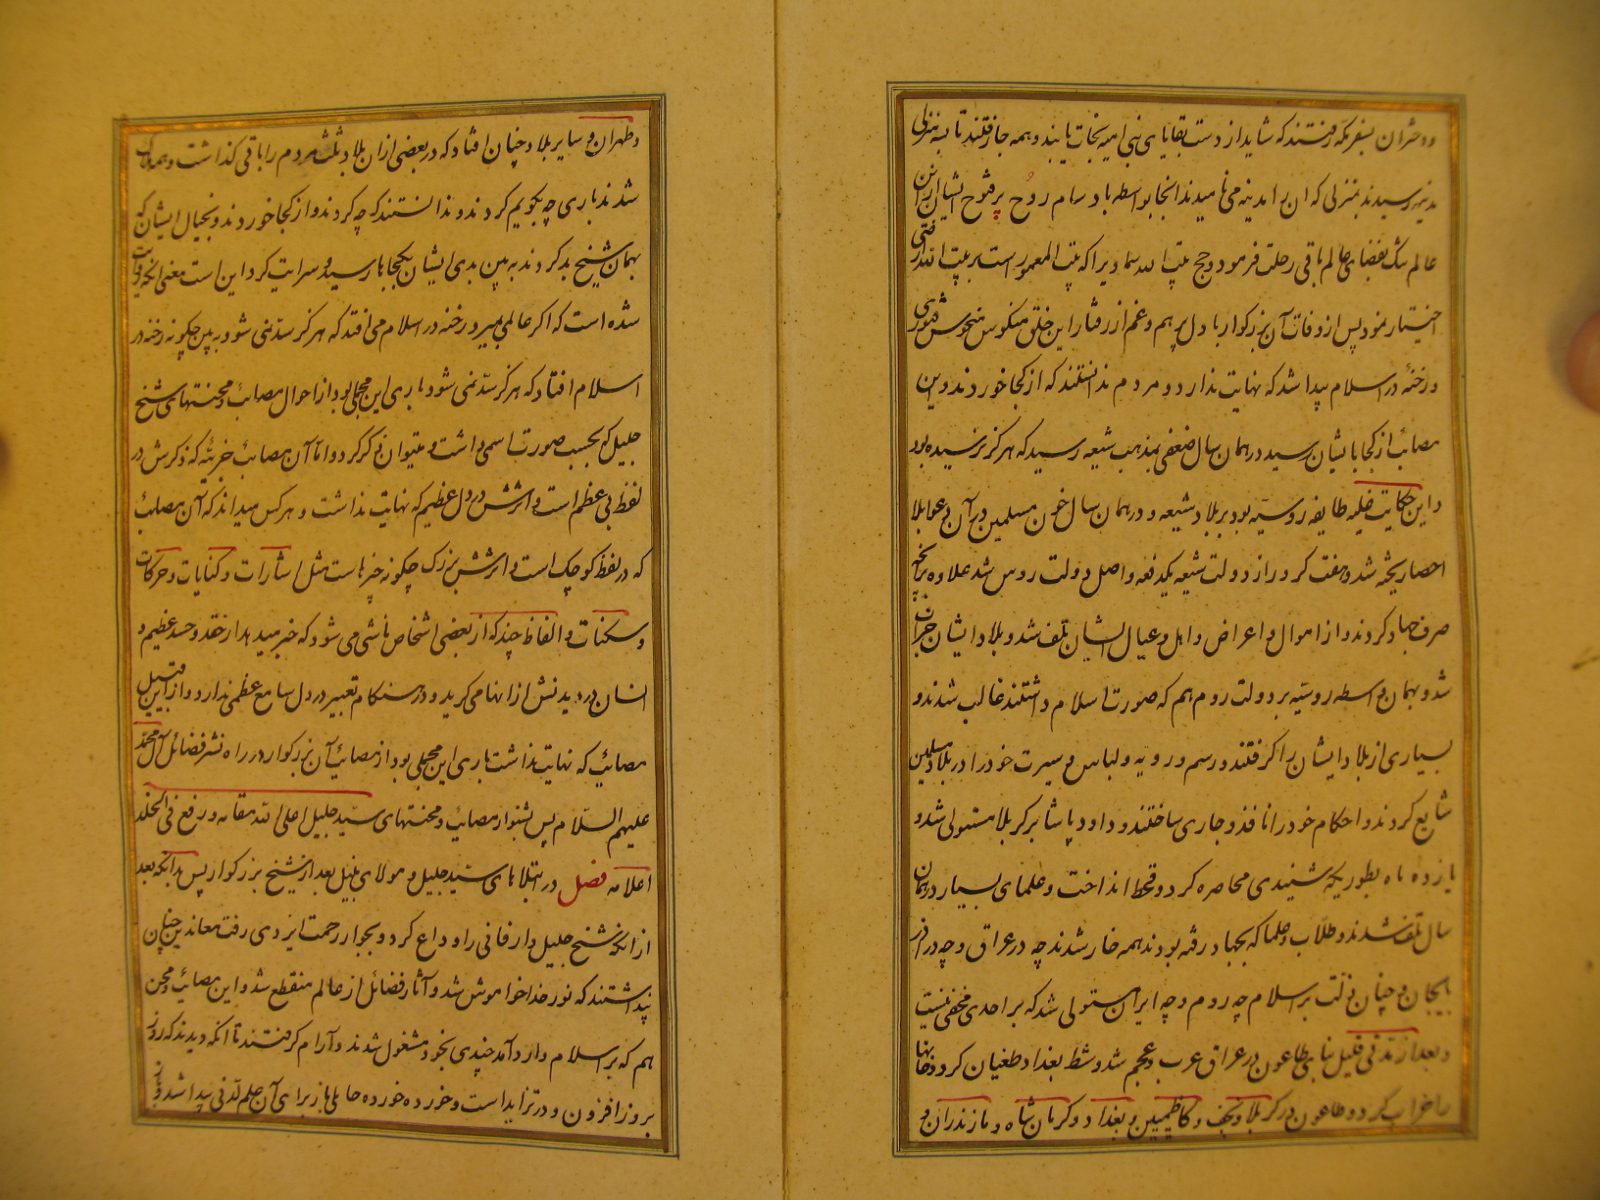 ودختران بسفر مکه رفتند که شاید از دست بقایای بنی امیه نجات یابند و همه جا رفتند تا بسه منزلی
مدینه رسیدند بمنزلی که ان را مدینه می نامیدند انجا بواسطه باد سام روح پر فتوح ایشان از این
عالم تنک بفضای عالم باقی رحلت فرمود و حج بیت الله سماوی را که بیت المعمور است بر بیت الله ارضی
اختیار نمود پس از وفات آن بزرکوار با دل پر هم و غم از رفتار این خلق منکوس منحوس
و رخنهٔ در اسلام پیدا شد که نهایت ندارد و مردم ندانستند که از کجا خوردند و این
مصائب از کجا بایشان رسید در همان سال ضعفی بمذهب شیعه رسید که هرکز نرسیده بود
و این حکایت غلبه طایفه روسیه بود بر بلاد شیعه و در همان سال خون مسلمین در آن
ریخته شد و هفت کرور از دولت شیعه یکدفعه واصل دولت روس شد علاوه بر آنچه
صرف جهاد کردند و از اموال و اعراض و اهل و عیال ایشان تلف شد و بلاد ایشان
شد و بهمان واسطه روسیه بر دولت روم هم که صورت اسلام داشتند غالب شدند و
بسیاری از بلاد ایشان را کرفتند و رسم و رویه و لباس و سیرت خود را در بلاد مسلمین
شایع کردند و احکام خود را نافذ و جاری ساختند و داود پاشا بر کربلا مستولی شد و
یازده ماه بطوریکه شنیدی محاصره کرد و قحط انداخت و علمای بسیار در همان
سال تلف شدند و طلاب و علما که بجهاد رفته بودند همه خار شدند چه در عراق و چه در اذر
بایجان و چنان ذلت بر اسلام چه روم و چه ایران مستولی شد که بر احدی مخفی نیست
و بعد از مدتی قلیل بنای طاعون در عراق عرب و عجم شد و شط بغداد طغیان کرد و خانها
را خراب کرد و طاعون در کربلا و نجف و کاظمین و بغداد و کرمان شاه و مازندران و
و طهران و سایر بلاد چنان افتاد که در بعضی از ان بلاد ثلث مردم را باقی کذاشت و همه هلاک
شدند باری چه بکویم کردند و ندانستند که چه کردند و از کجا خوردند و بخیال ایشان که
بهمان شیخ بد کردند به بین بدی ایشان بکجاها رسید و سرایت کرد و این است معنی انکه روایت
شده است که اکر عالمی بمیرد رخنه در اسلام می افتد که هرکز سد نمی شود به بین چکونه رخنه در
اسلام افتاد که هرکز سد نمی شود باری این مجملی بود از احوال مصائب و محنتهای شیخ
جلیل که بحسب صورت اسمی داشت و میتوان ذکر کرد و اما آن مصائب جزئیه که ذکرش در
لفظ بی عظم است و اثرش در دل عظیم که نهایت نداشت و هرکس میداند که آن مصائب
که در لفظ کوچک است و اثرش بزرک چکونه چیزها است مثل اشارات و کنایات و حرکات
و سکنات و الفاظ چند که از بعضی اشخاص ناشی می شود که خبر میدهد از حقد و حسد عظیم و
انسان در دیدنش از انها می کرید و در هنکام تعبیر در دل سامع عظمی ندارد و از این قبیل
مصائب که نهایت نداشت باری این مجملی بود از مصائب آن بزرکوار در راه نشر فضائل آل محمد
علیهم السلام پس بشنو از مصائب و محنتهای سید جلیل اعلی الله مقامه و رفع فی الخلد
اعلامه فصل در ابتلاهای سید جلیل و مولای نبیل بعد از شیخ بزرکوار پس بدانکه بعد
از انکه شیخ جلیل دار فانی را وداع کرد و بجوار رحمت ایزدی رفت معاندین چنان
پنداشتند که نور خدا خواموش شد و آثار فضائل از عالم منقطع شد و این مصائب و محن
هم که بر اسلام وارد آمد چندی بخود مشغول شدند و آرام کرفتند تا انکه دیدند که روز
بروز افزون و در تزاید است و خرده خرده حاملی باز برای آن علم لدنی پیدا شد و